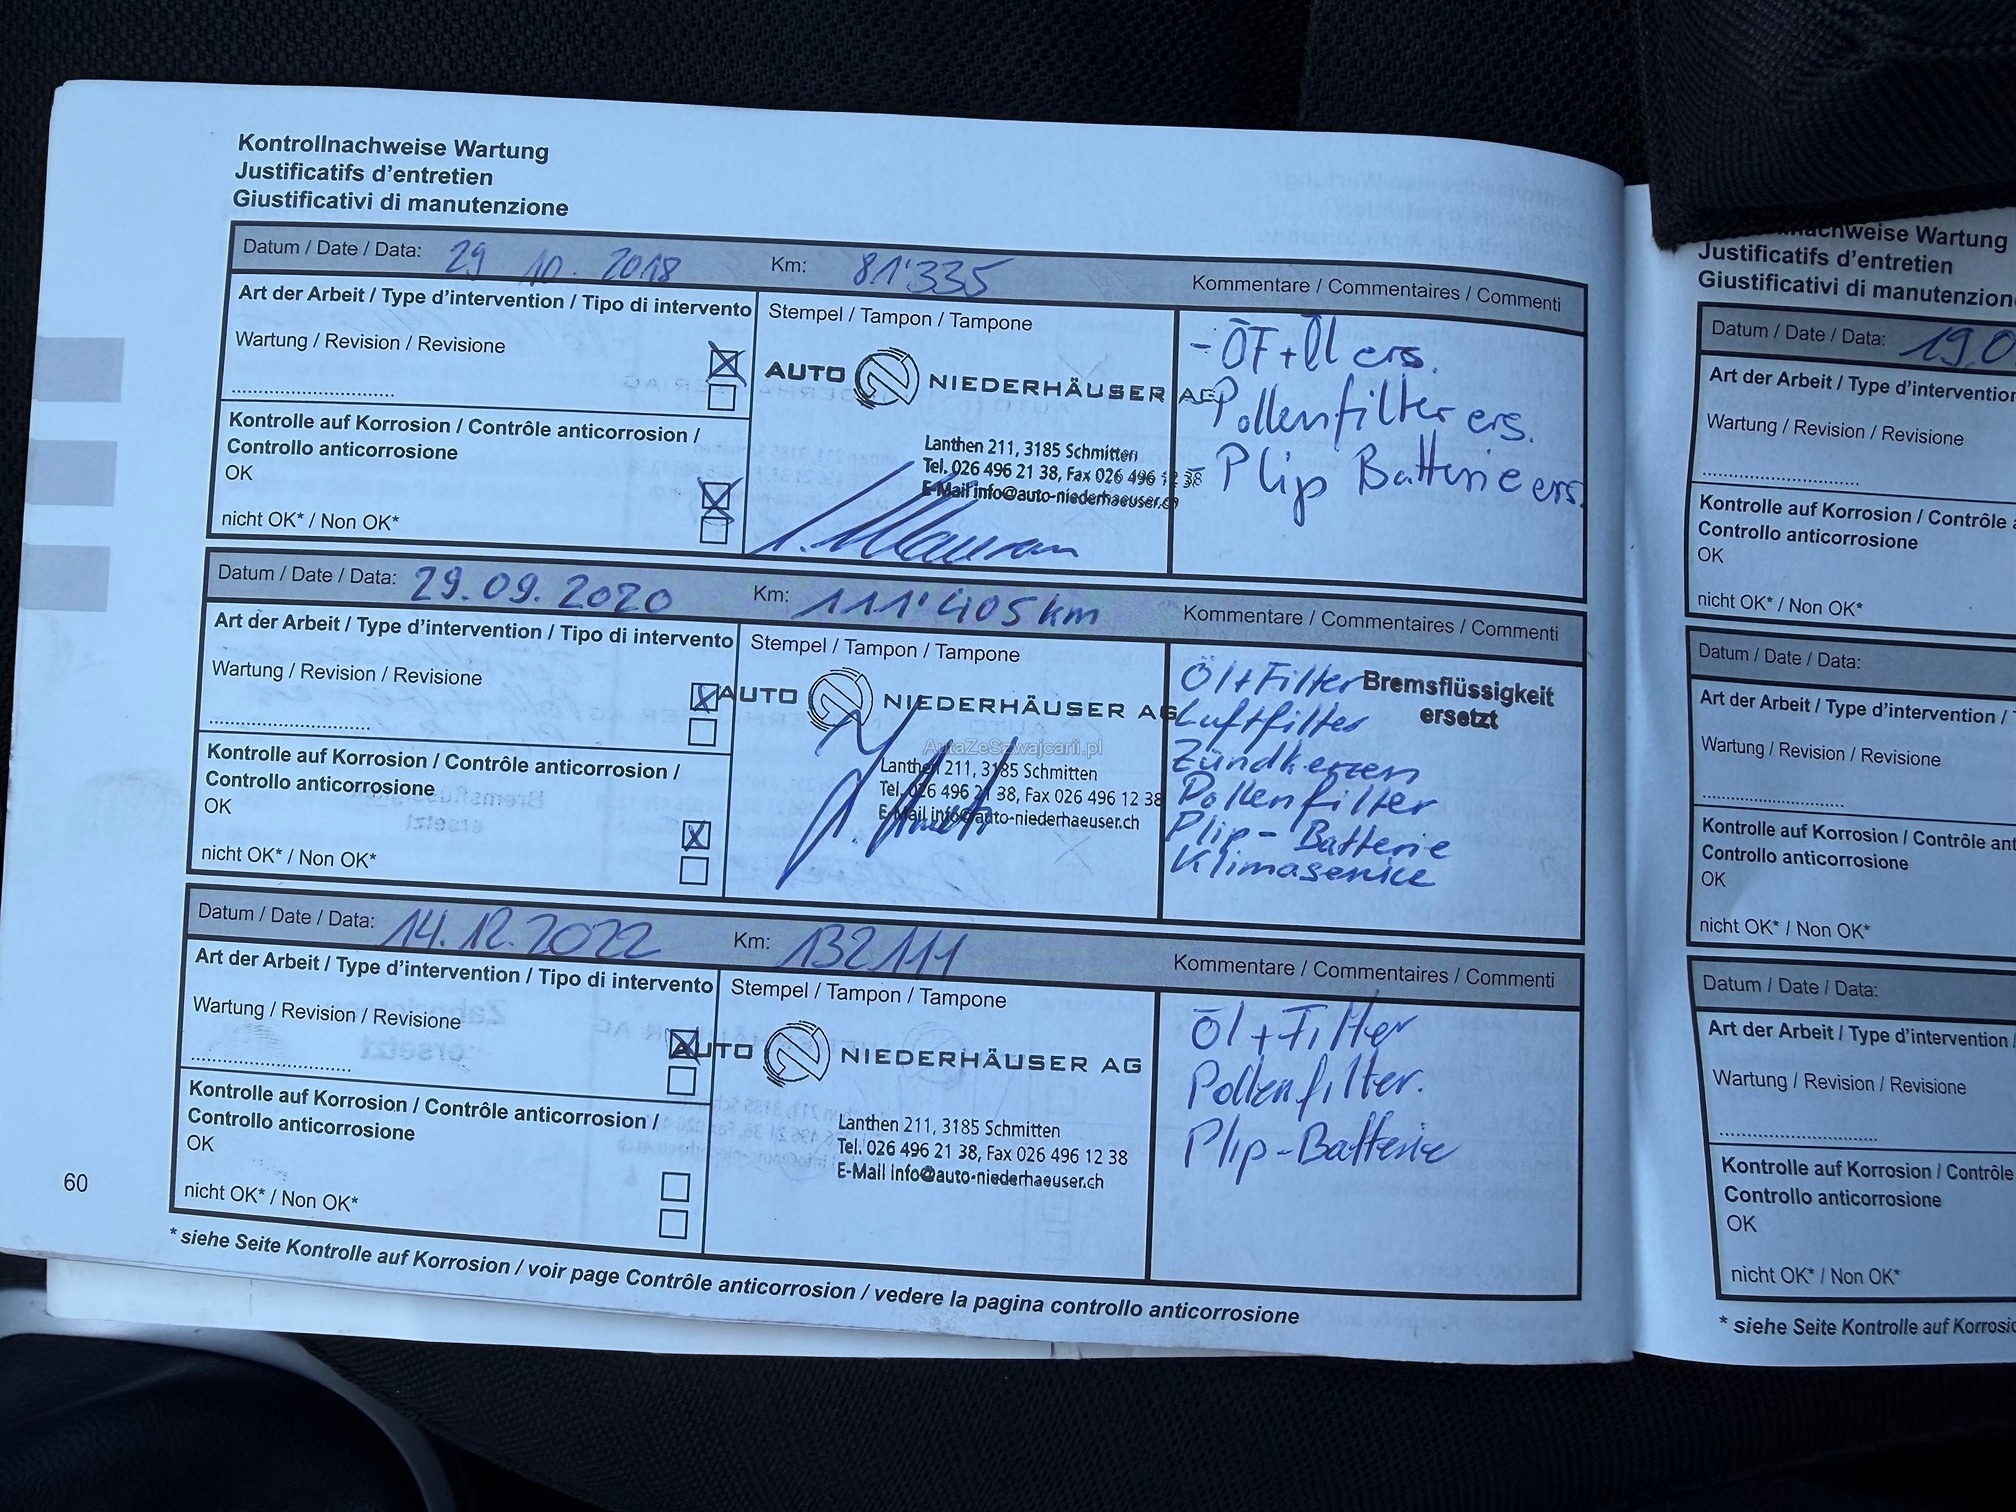 Kontrollnachweise Wartung
Justificatifs d'entretien
Giustificativi di manutenzione
Datum / Date / Data: 29 10. 2018 Km: 81'335 Kommentare / Commentaires / Commenti
Art der Arbeit / Type d'intervention / Tipo di intervento
Wartung / Revision / Revisione
Kontrolle auf Korrosion / Contrôle anticorrosion /
Controllo anticorrosione
OK
nicht OK* / Non OK*
Stempel / Tampon / Tampone
AUTO NIEDERHÄUSER AG
Lanthen 211, 3185 Schmitten
Tel. 026 496 21 38, Fax 026 496 12 38
E-Mail info@auto-niederhaeuser.ch
- ÖF + Öl ers.
Pollenfilter ers.
- Plip Batterie ers.
Datum / Date / Data: 29.09.2020 Km: 111'405 km Kommentare / Commentaires / Commenti
Art der Arbeit / Type d'intervention / Tipo di intervento
Wartung / Revision / Revisione
Kontrolle auf Korrosion / Contrôle anticorrosion /
Controllo anticorrosione
OK
nicht OK* / Non OK*
Stempel / Tampon / Tampone
AUTO NIEDERHÄUSER AG
AutaZeSzwajcarii.pl
Lanthen 211, 3185 Schmitten
Tel. 026 496 21 38, Fax 026 496 12 38
E-Mail info@auto-niederhaeuser.ch
Öl + Filter
Luftfilter
Zündkerzen
Pollenfilter
Plip - Batterie
Klimaservice
Bremsflüssigkeit
ersetzt
Datum / Date / Data: 14.12.2022 Km: 132111 Kommentare / Commentaires / Commenti
Art der Arbeit / Type d'intervention / Tipo di intervento
Wartung / Revision / Revisione
Kontrolle auf Korrosion / Contrôle anticorrosion /
Controllo anticorrosione
OK
nicht OK* / Non OK*
Stempel / Tampon / Tampone
AUTO NIEDERHÄUSER AG
Lanthen 211, 3185 Schmitten
Tel. 026 496 21 38, Fax 026 496 12 38
E-Mail info@auto-niederhaeuser.ch
Öl + Filter
Pollenfilter.
Plip - Batterie
* siehe Seite Kontrolle auf Korrosion / voir page Contrôle anticorrosion / vedere la pagina controllo anticorrosione
60
Wartung
Justificatifs d'entretien
Giustificativi di
Datum / Date / Data: 19.0
Art der Arbeit / Type d'intervention
Wartung / Revision / Revisione
Kontrolle auf Korrosion / Contrôle
Controllo anticorrosione
OK
nicht OK* / Non OK*
Datum / Date / Data:
Art der Arbeit / Type d'intervention /
Wartung / Revision / Revisione
Kontrolle auf Korrosion / Contrôle
Controllo anticorrosione
OK
nicht OK* / Non OK*
Datum / Date / Data:
Art der Arbeit / Type d'intervention /
Wartung / Revision / Revisione
Kontrolle auf Korrosion / Contrôle
Controllo anticorrosione
OK
nicht OK* / Non OK*
* siehe Seite Kontrolle auf